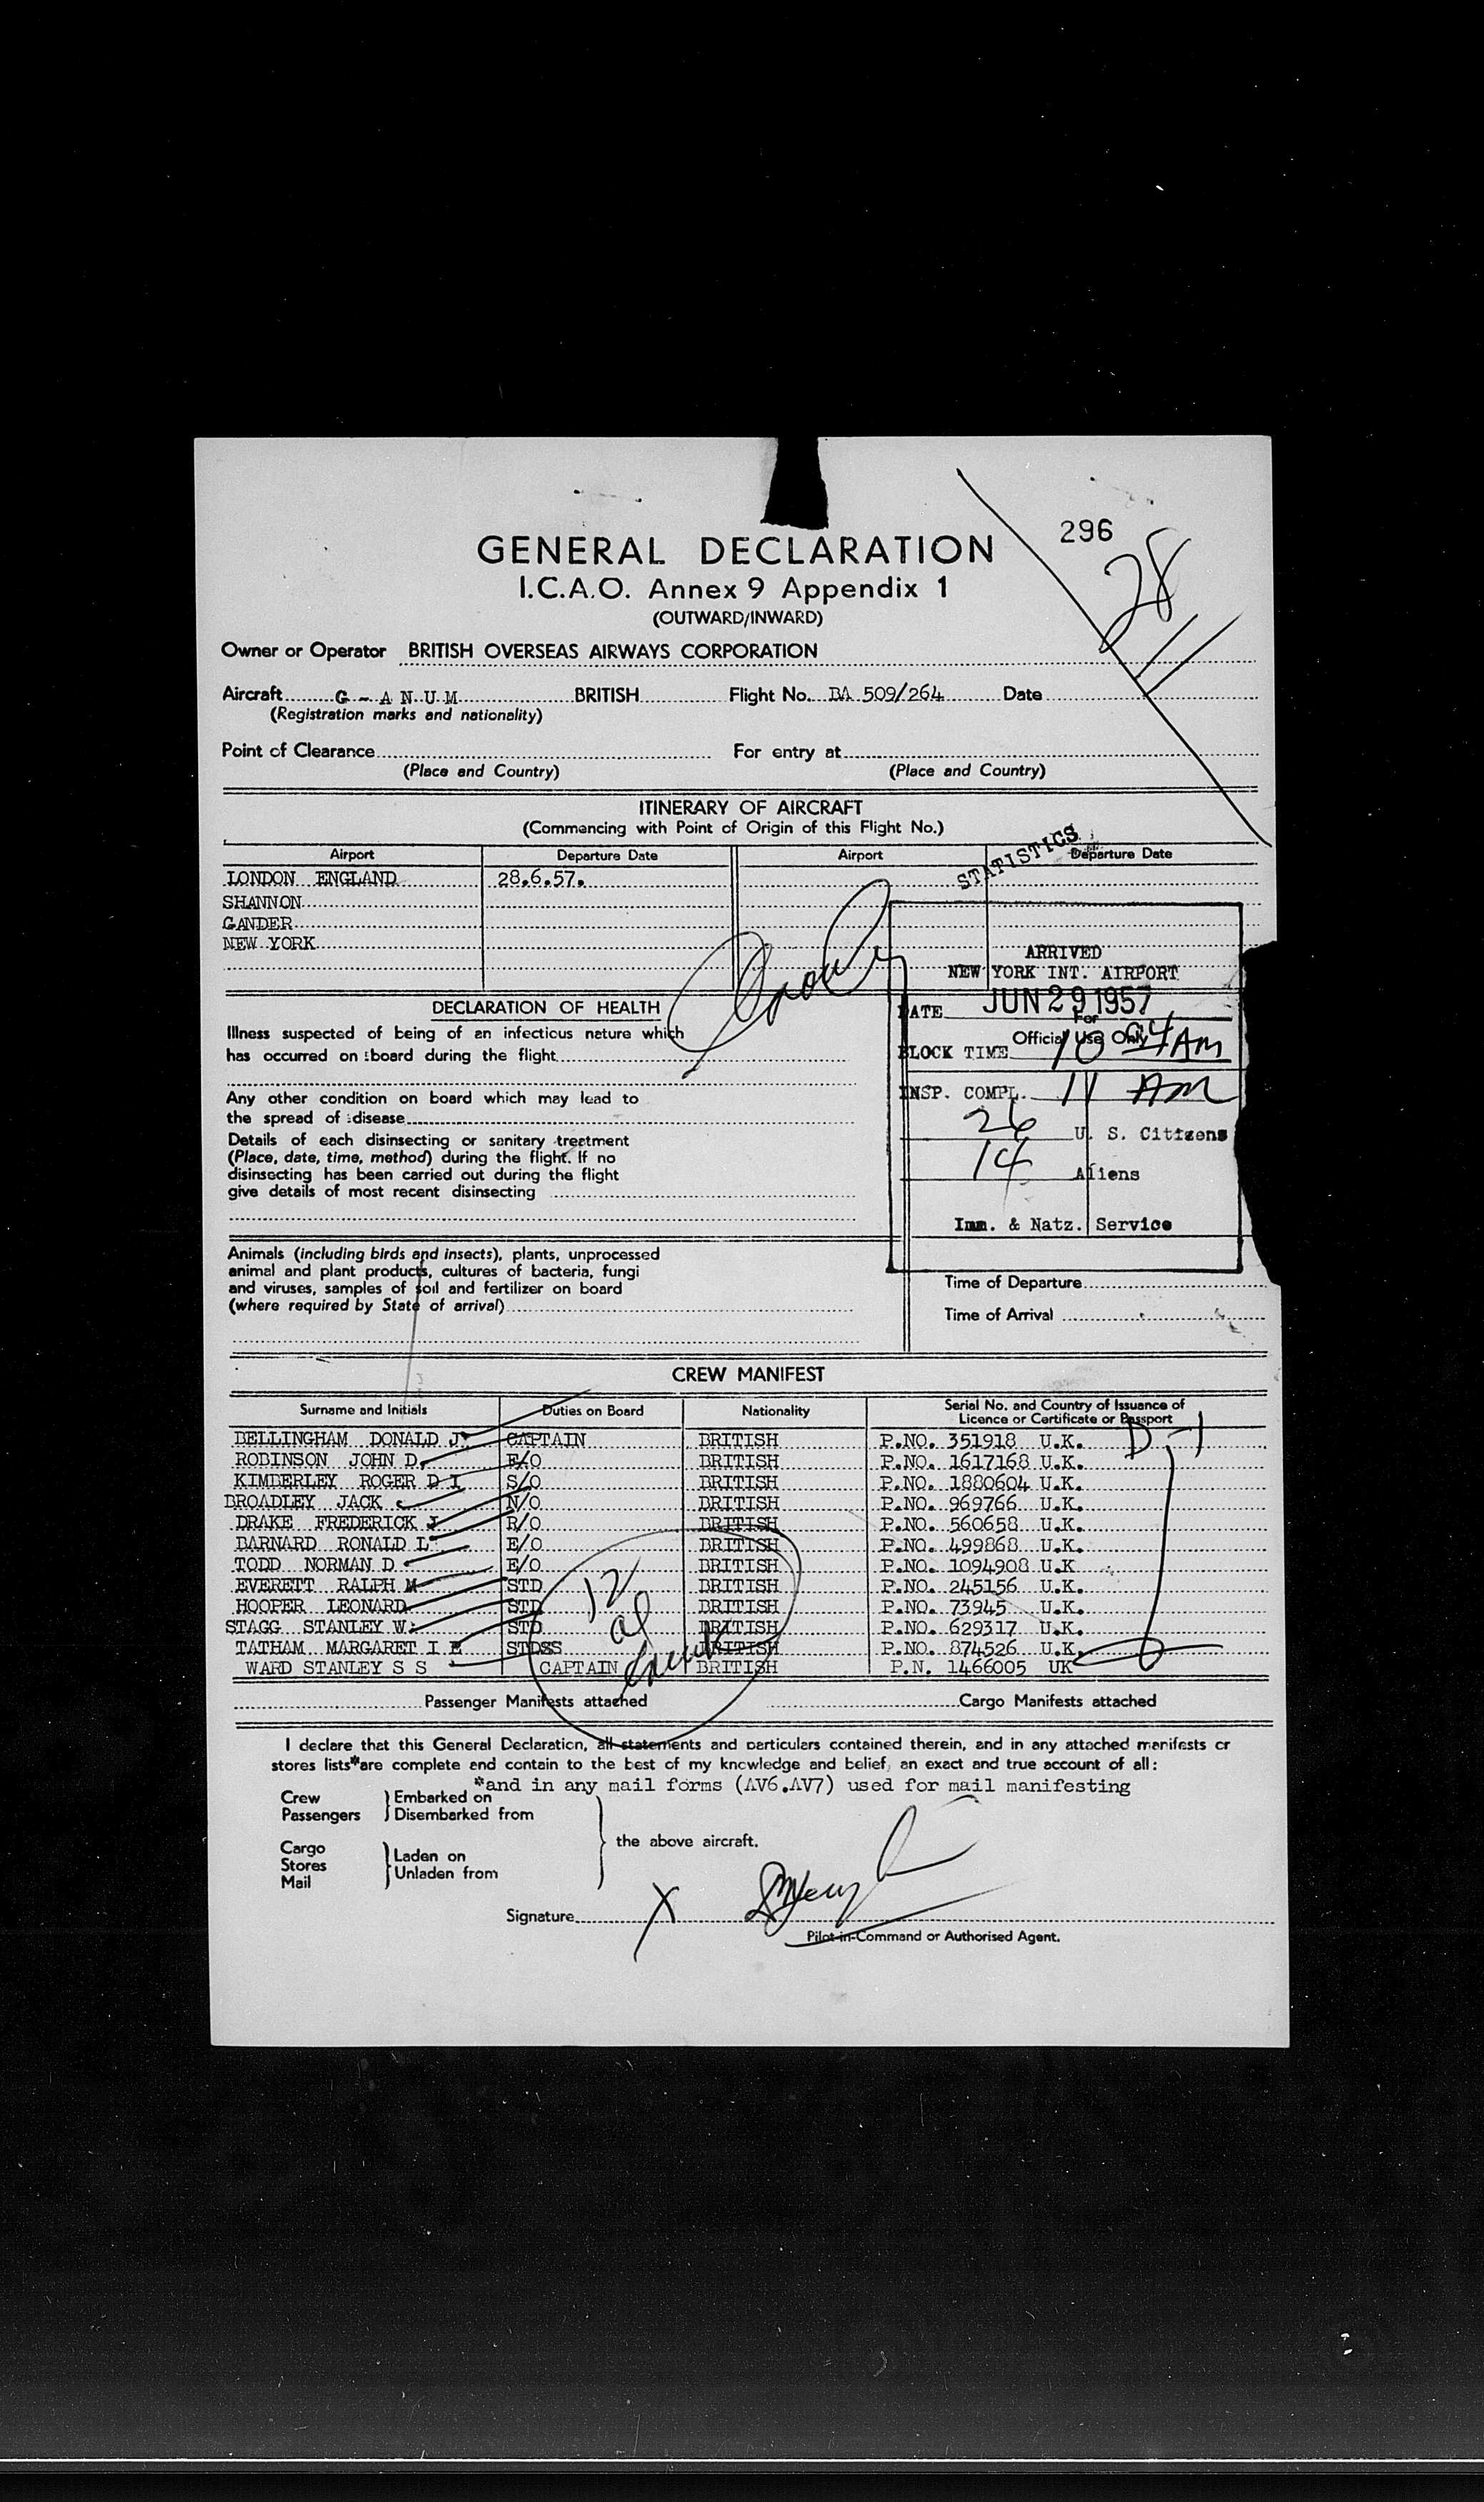 296
28
GENERAL DECLARATION
I.C.A.O. Annex 9 Appendix 1
(OUTWARD/INWARD)
Owner or Operator BRITISH OVERSEAS AIRWAYS CORPORATION
Aircraft G - A N U M BRITISH Flight No. BA 509/264 Date
(Registration marks and nationality)
Point of Clearance For entry at
(Place and Country) (Place and Country)
ITINERARY OF AIRCRAFT
(Commencing with Point of Origin of this Flight No.)
STATISTICS
Airport Departure Date Airport Departure Date
LONDON ENGLAND 28.6.57.
SHANNON
GANDER
NEW YORK
ARRIVED
NEW YORK INT. AIRPORT
DATE JUN 29 1957
For
Official Use Only
BLOCK TIME 10 54 AM
INSP. COMPL. 11 AM
26 U. S. Citizens
14 Aliens
Imm. & Natz. Service
DECLARATION OF HEALTH
Illness suspected of being of an infectious nature which
has occurred on board during the flight
Any other condition on board which may lead to
the spread of disease
Details of each disinsecting or sanitary treatment
(Place, date, time, method) during the flight. If no
disinsecting has been carried out during the flight
give details of most recent disinsecting
Animals (including birds and insects), plants, unprocessed
animal and plant products, cultures of bacteria, fungi
and viruses, samples of soil and fertilizer on board
(where required by State of arrival)
Time of Departure
Time of Arrival
CREW MANIFEST
Surname and Initials Duties on Board Nationality Serial No. and Country of Issuance of
Licence or Certificate or Passport
BELLINGHAM DONALD J. CAPTAIN BRITISH P.NO. 351918 U.K. D-1
ROBINSON JOHN D. F/O BRITISH P.NO. 1617168 U.K.
KIMBERLEY ROGER D I S/O BRITISH P.NO. 1880604 U.K.
BROADLEY JACK N/O BRITISH P.NO. 969766 U.K.
DRAKE FREDERICK J R/O BRITISH P.NO. 560658 U.K.
BARNARD RONALD L E/O BRITISH P.NO. 499868 U.K.
TODD NORMAN D E/O BRITISH P.NO. 1094908 U.K
EVERETT RALPH M STD BRITISH P.NO. 245156 U.K.
HOOPER LEONARD STD BRITISH P.NO. 73945 U.K.
STAGG STANLEY W. STD BRITISH P.NO. 629317 U.K.
TATHAM MARGARET I E STDSS BRITISH P.NO. 874526 U.K.
WARD STANLEY S S CAPTAIN BRITISH P.N. 1466005 UK
12
Passenger Manifests attached Cargo Manifests attached
I declare that this General Declaration, all statements and particulars contained therein, and in any attached manifests or
stores lists*are complete and contain to the best of my knowledge and belief, an exact and true account of all:
*and in any mail forms (AV6.AV7) used for mail manifesting
Crew Embarked on
Passengers Disembarked from
the above aircraft.
Cargo
Stores Laden on
Mail Unladen from
Signature X
Pilot-in-Command or Authorised Agent.